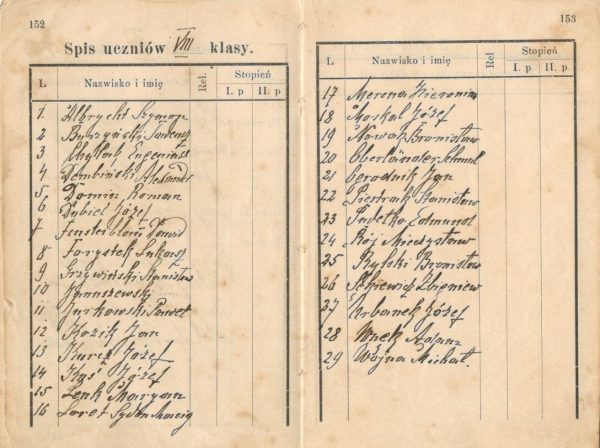 152
Spis uczniów VIII klasy.
L Nazwisko i imię Rel. Stopień
I. p II. p
1. Albrycht Szymon
2 Buszyński Tadeusz
3 Chyłak Eugeniusz
4 Dembiński Aleksander
5 Domin Roman
6 Dubiel Józef
7 Fensterblau Dawid
8 Forystek Łukasz
9 Grzywiński Stanisław
10 Januszewski
11 Jurkowski Paweł
12 Kozik Jan
13 Kurcz Józef
14 Kuś Józef
15 Lenk Maryan
16 Loret
153
L Nazwisko i imię Rel Stopień
I. p II. p
17 Merena Hieronim
18 Moskal Józef
19 Nowak Bronisław
20 Oberländer
21 Ogrodnik Jan
22 Pietrak Stanisław
23 Pudełko Edmund
24 Rój Mieczysław
25 Rylski Bronisław
26 Zbigniew
27 Urbanek Józef
28 Wnęk Adam
29 Wojna Michał.